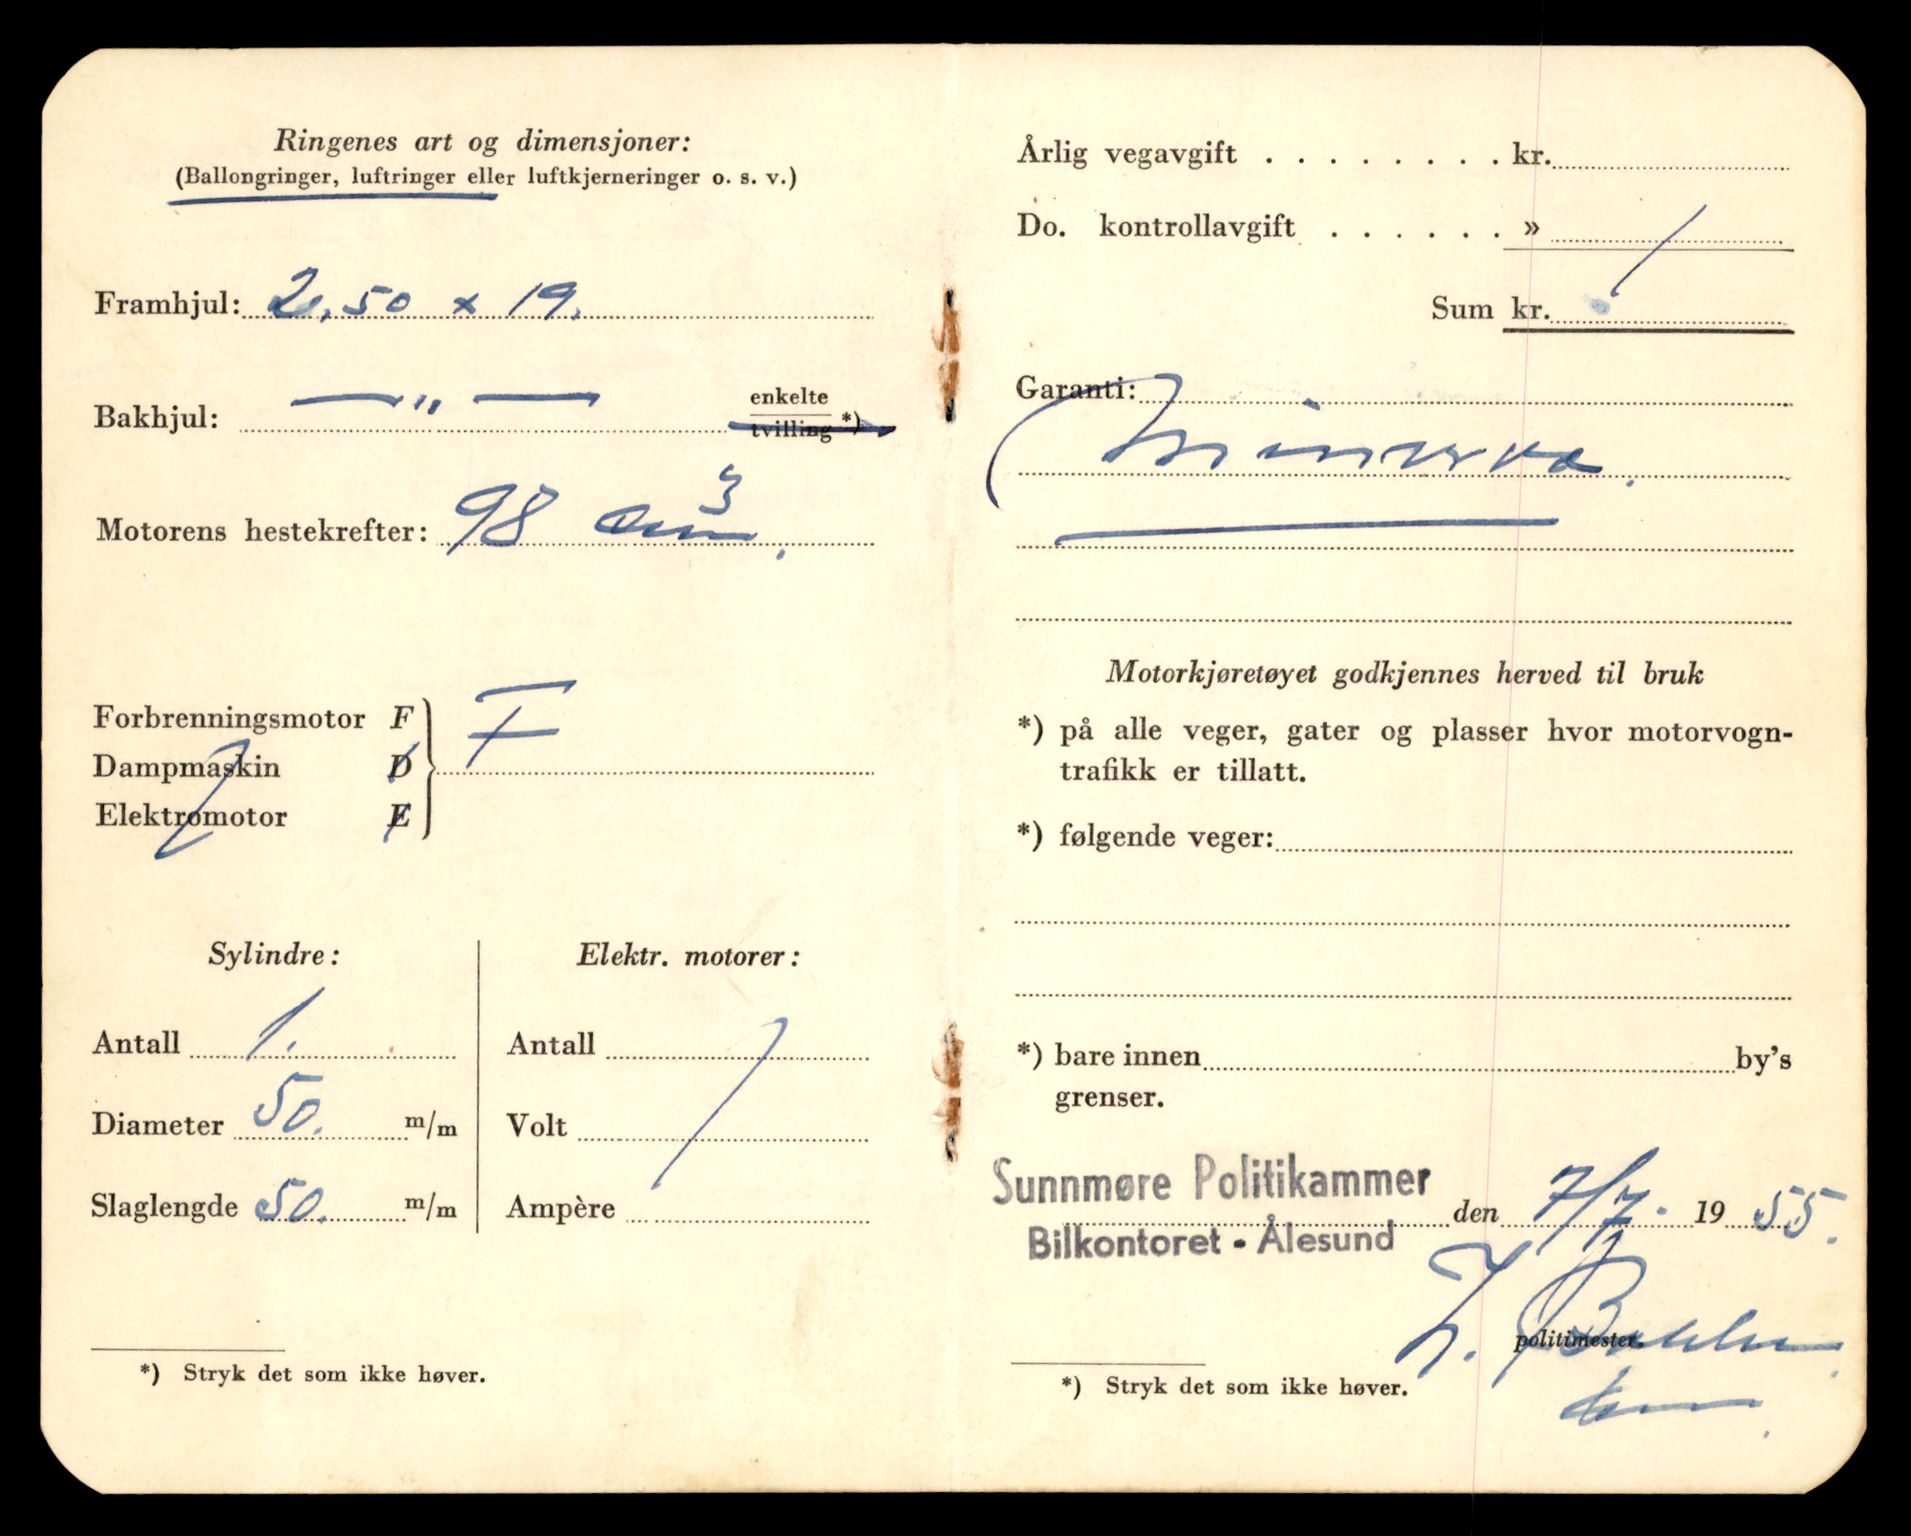 Ringenes art og dimensjoner:
(Ballongringer, luftringer eller luftkjerneringer o. s. v.)
Framhjul: 2,50 x 19.
Bakhjul: — " — enkelte
tvilling *)
Motorens hestekrefter: 98 cm³.
Forbrenningsmotor F F
Dampmaskin D
Elektromotor E
Sylindre:
Antall 1.
Diameter 50. m/m
Slaglengde 50. m/m
Elektr. motorer:
Antall
Volt
Ampère
*) Stryk det som ikke høver.
Årlig vegavgift . . . . . . . . kr.
Do. kontrollavgift . . . . . . »
Sum kr.
Garanti:
Minerva.
Motorkjøretøyet godkjennes herved til bruk
*) på alle veger, gater og plasser hvor motorvogn-
trafikk er tillatt.
*) følgende veger:
*) bare innen by's
grenser.
Sunnmøre Politikammer
den 7/7. 19 55.
Bilkontoret - Ålesund
politimester.
*) Stryk det som ikke høver.